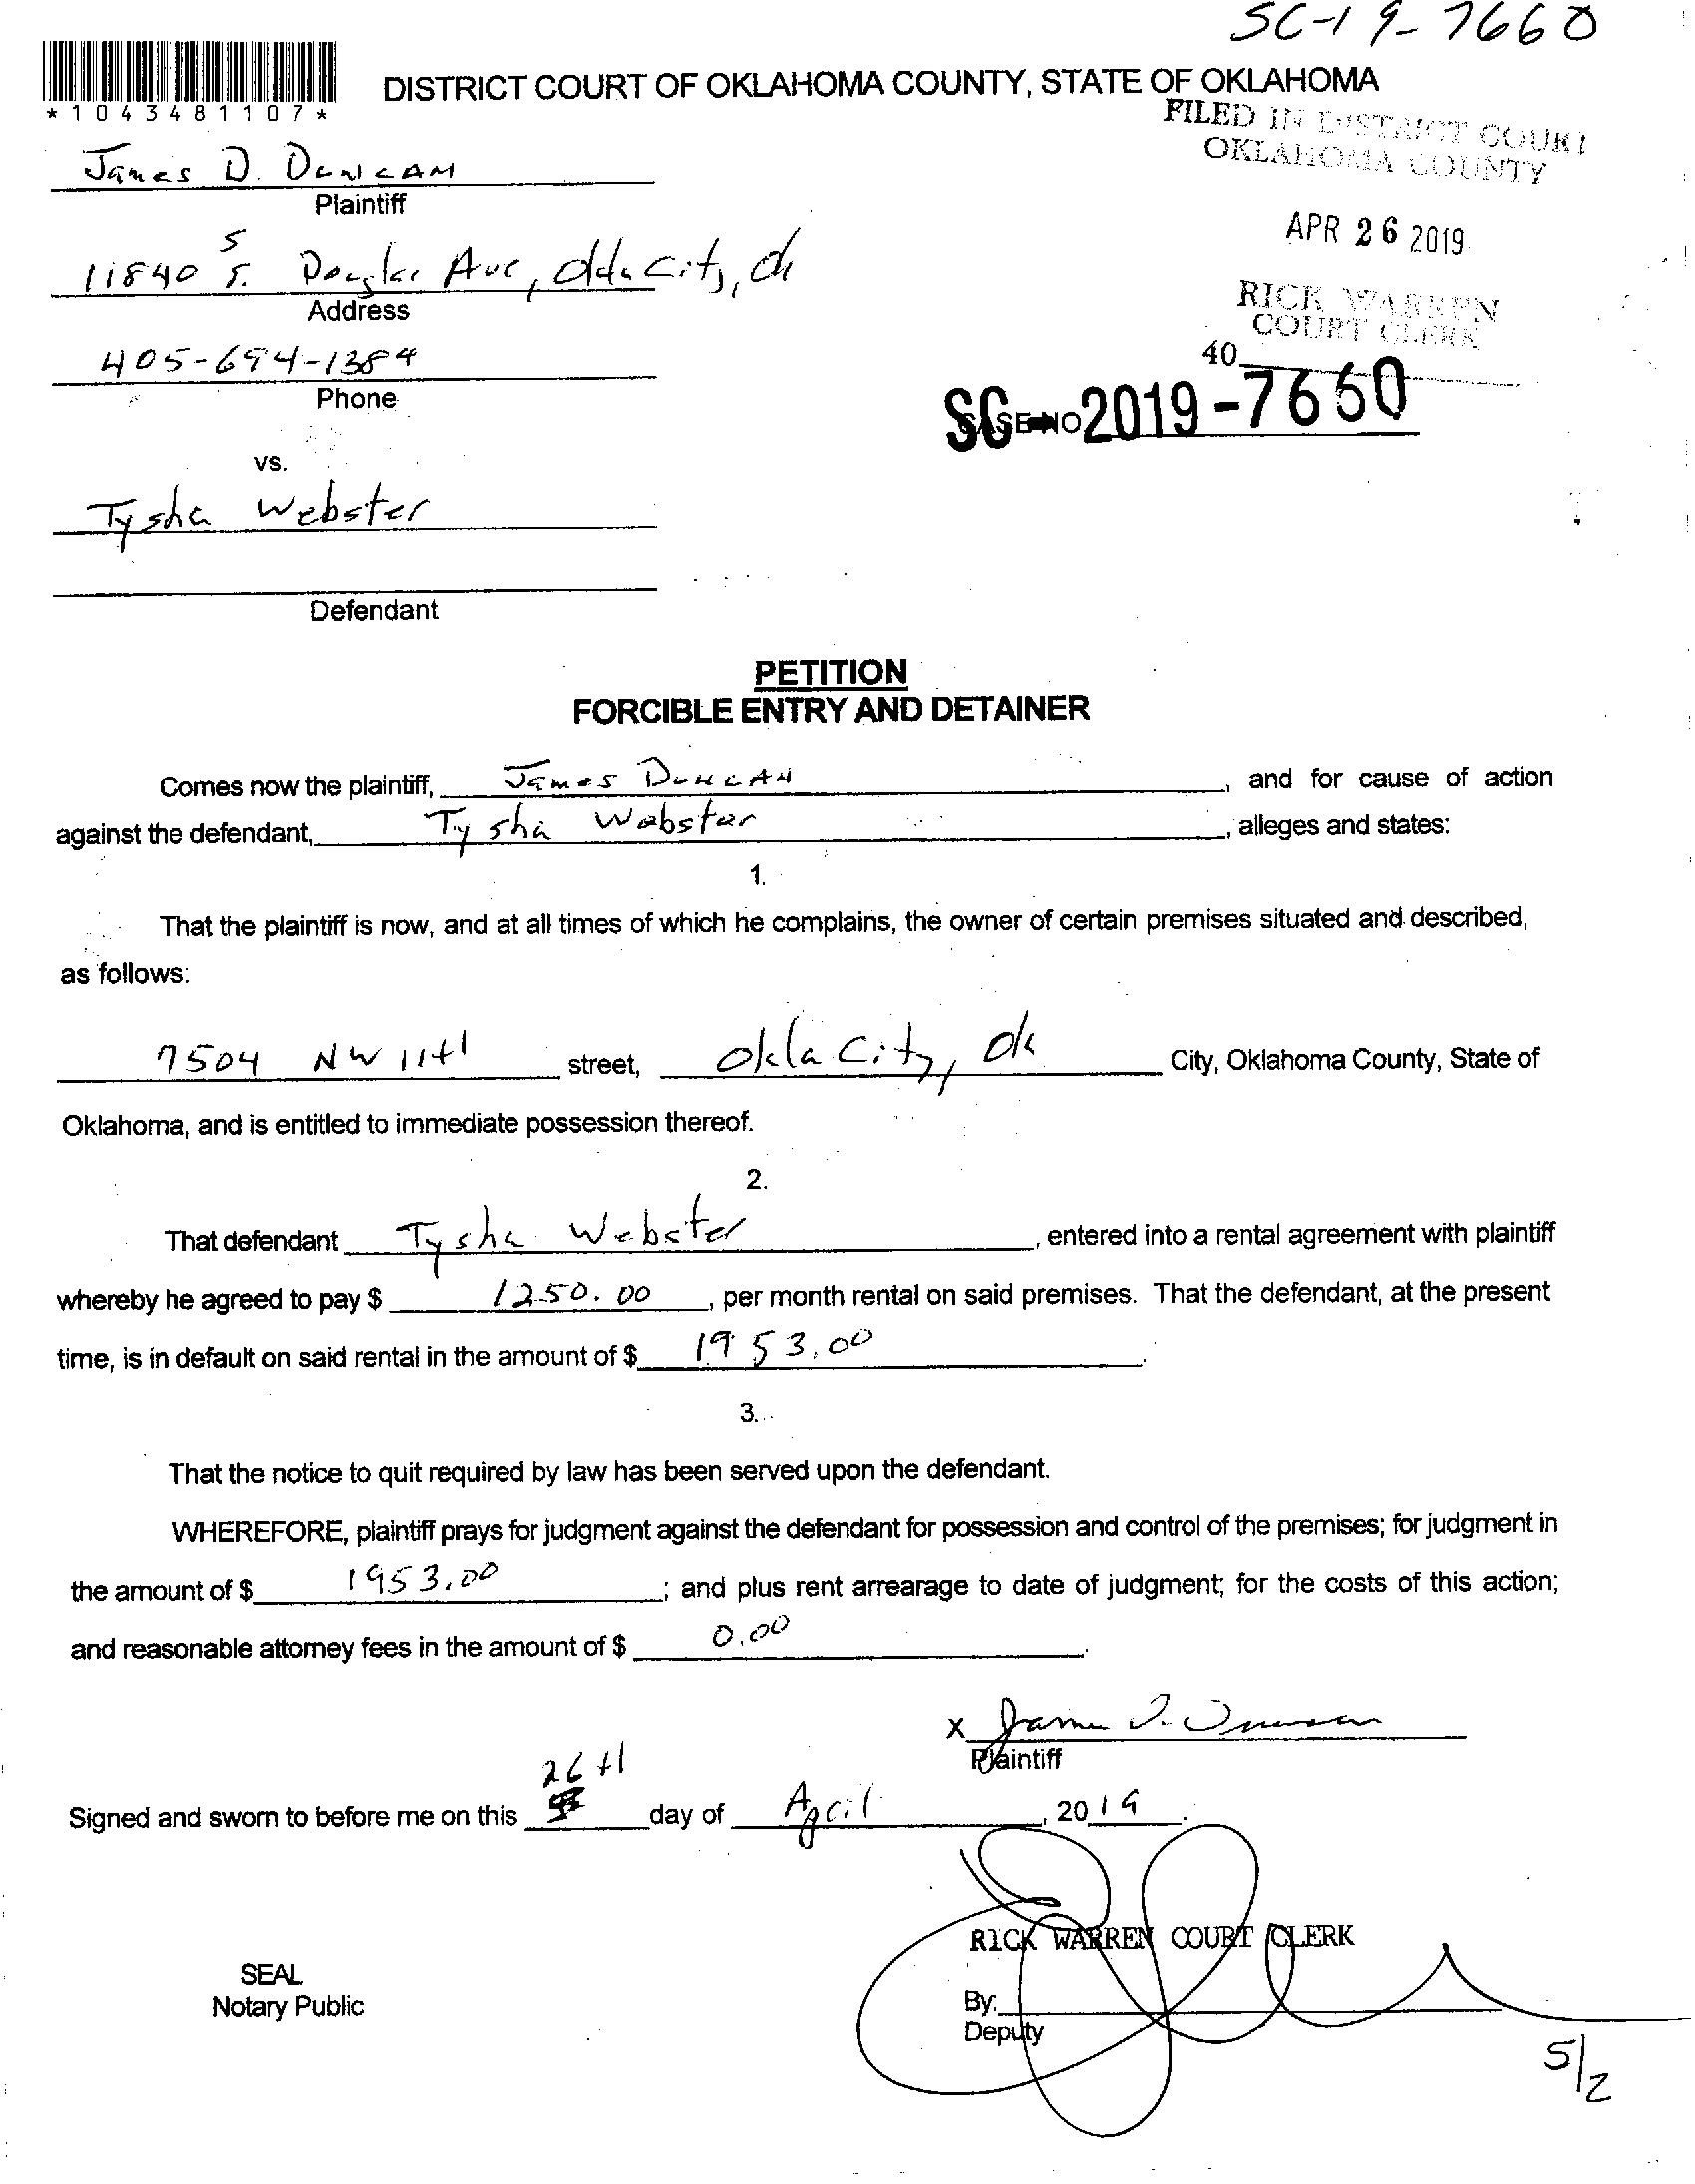 SC-19-7660
*1043481107*
DISTRICT COURT OF OKLAHOMA COUNTY, STATE OF OKLAHOMA
FILED IN DISTRICT COURT
OKLAHOMA COUNTY
James D. Duncan
Plaintiff
APR 26 2019
S
11840 S. Douglas Ave, Okla City, Ok
Address
RICK WARREN
COURT CLERK
40
405-694-1384
Phone
SC CASE NO 2019-7660
vs.
Tysha Webster
Defendant
PETITION
FORCIBLE ENTRY AND DETAINER
Comes now the plaintiff, James Duncan, and for cause of action
against the defendant, Tysha Webster, alleges and states:
1.
That the plaintiff is now, and at all times of which he complains, the owner of certain premises situated and described,
as follows:
7504 NW 11th street, Okla City, Ok City, Oklahoma County, State of
Oklahoma, and is entitled to immediate possession thereof.
2.
That defendant Tysha Webster, entered into a rental agreement with plaintiff
whereby he agreed to pay $ 1250.00, per month rental on said premises. That the defendant, at the present
time, is in default on said rental in the amount of $ 1953.00.
3.
That the notice to quit required by law has been served upon the defendant.
WHEREFORE, plaintiff prays for judgment against the defendant for possession and control of the premises; for judgment in
the amount of $ 1953.00; and plus rent arrearage to date of judgment; for the costs of this action;
and reasonable attorney fees in the amount of $ 0.00.
X James D. Duncan
Plaintiff
26th
Signed and sworn to before me on this day of April, 2019.
RICK WARREN COURT CLERK
SEAL
Notary Public
By:
Deputy
5/2